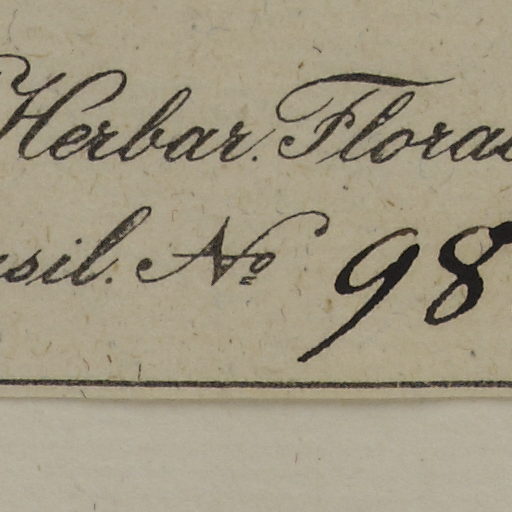 Herbar. Florae
sil. No 98